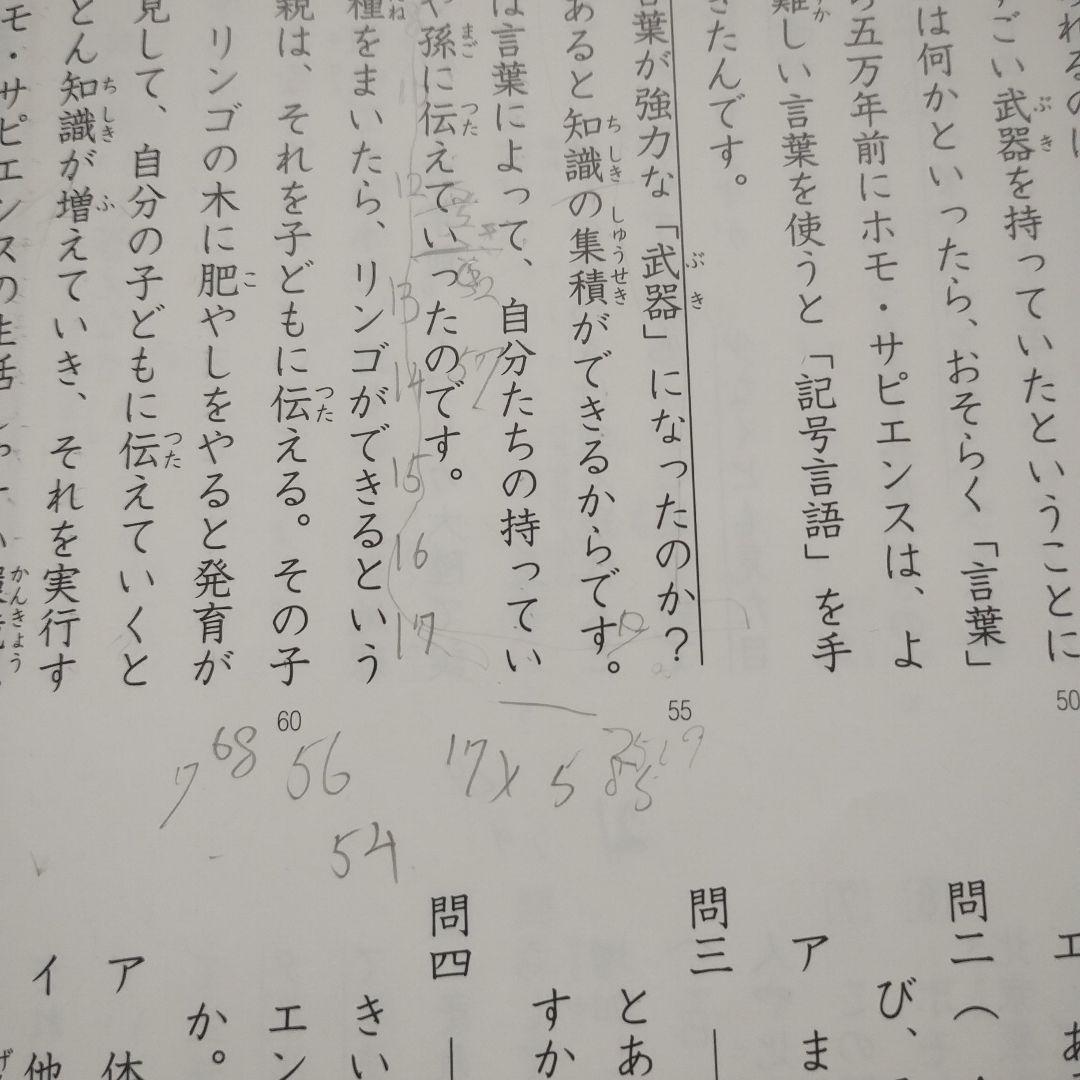 られるのは
すごい武器を持っていたということに
は何かといったら、おそらく「言葉」
ら五万年前にホモ・サピエンスは、よ
難しい言葉を使うと「記号言語」を手
きたんです。
言葉が強力な「武器」になったのか？
あると知識の集積ができるからです。
は言葉によって、自分たちの持ってい
や孫に伝えていったのです。
種をまいたら、リンゴができるという
親は、それを子どもに伝える。その子
リンゴの木に肥やしをやると発育が
見して、自分の子どもに伝えていくと
とん知識が増えていき、それを実行す
モ・サピエンスの生活
50
55
60
12
13
14
15
16
17
57
17×5
85
56
68
7
54
エ
問二（
び、
ア ま
問三
とあ
すか
問四
きい
エン
か。
ア 休
イ 他